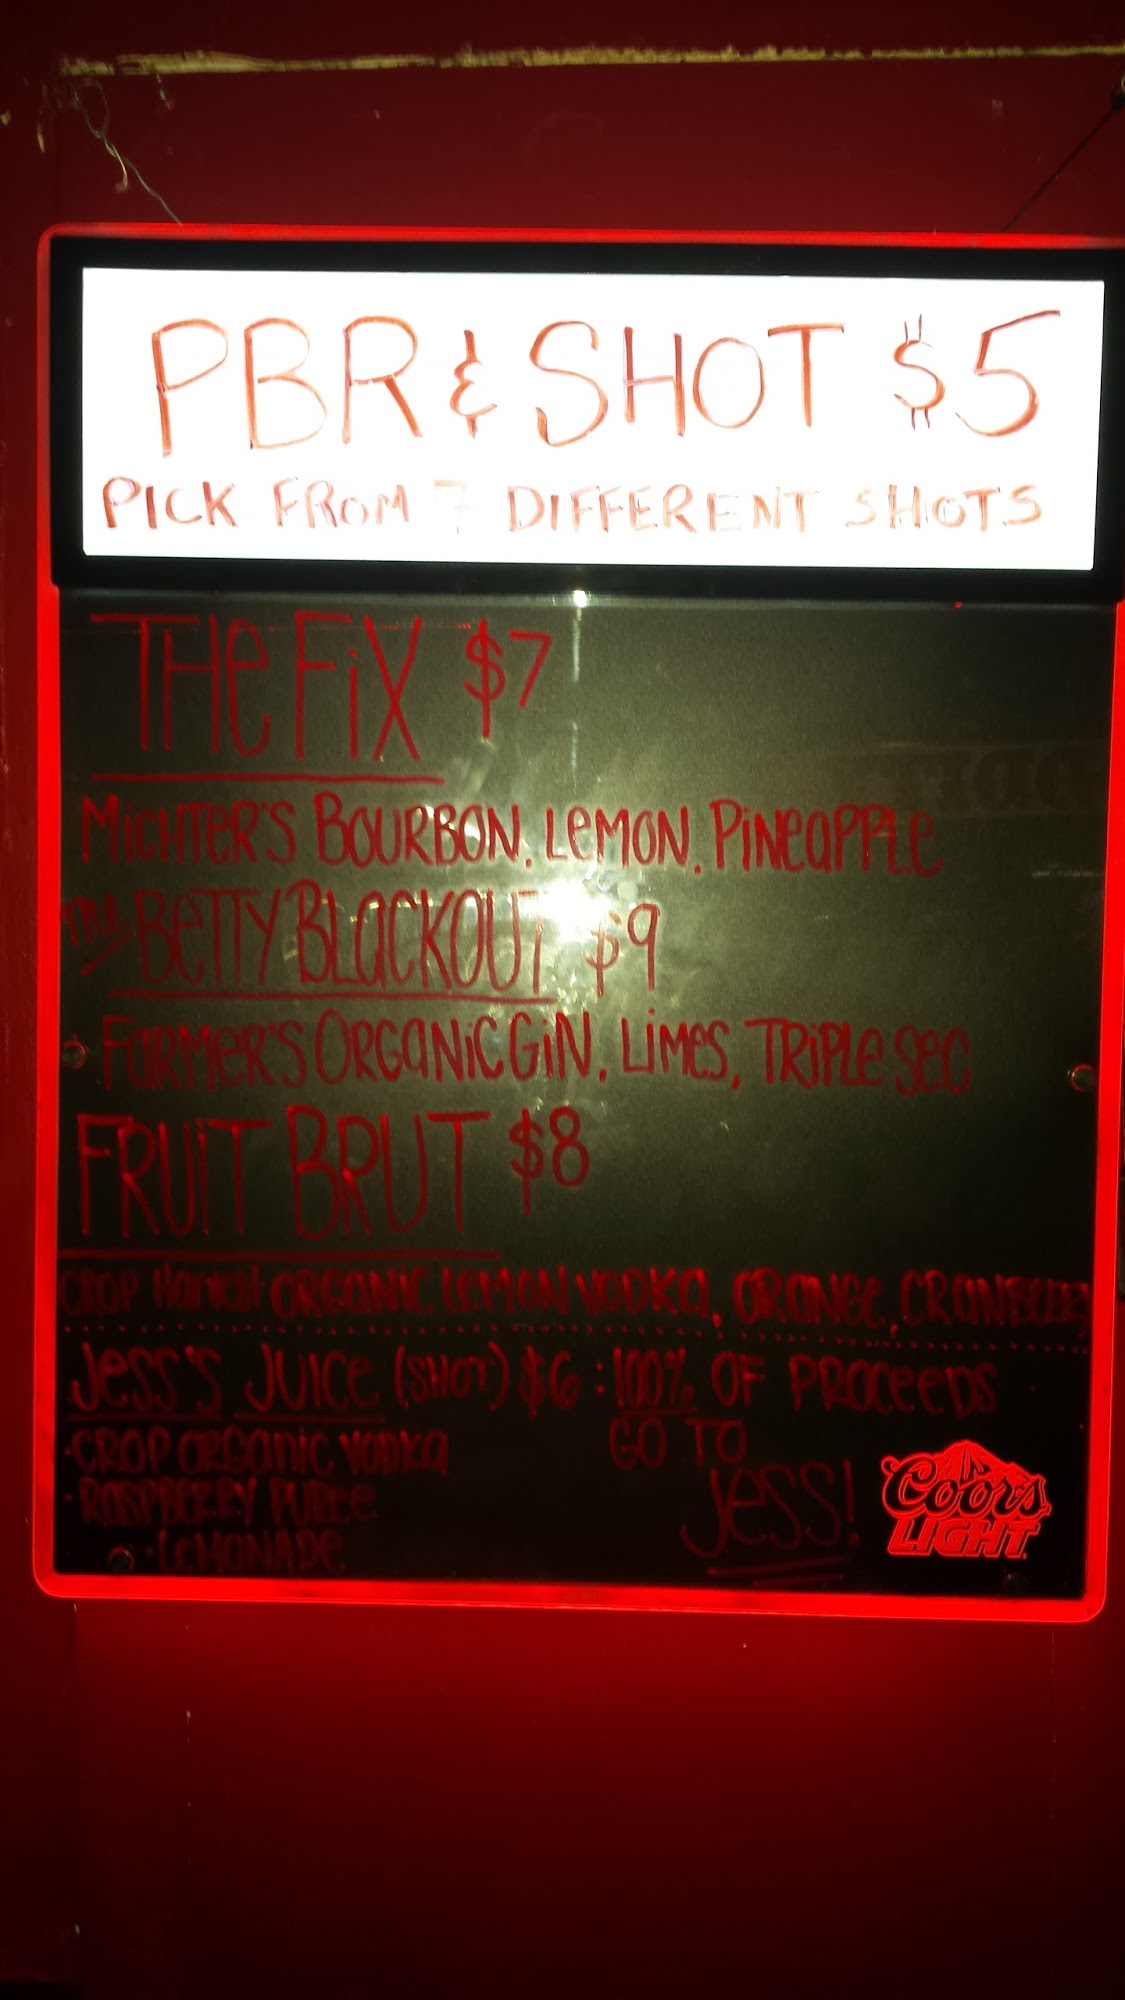 PBR & SHOT $5
PICK FROM 7 DIFFERENT SHOTS
THE FIX $7
MICHTER'S BOURBON, LEMON, PINEAPPLE
THE BETTY BLACKOUT $9
FARMER'S ORGANIC GIN, LIMES, TRIPLE SEC
FRUIT BRUT $8
CROP HARVEST ORGANIC LEMON VODKA, ORANGE, CRANBERRY
JESS'S JUICE (SHOT) $6 : 100% OF PROCEEDS
GO TO
JESS!
·CROP ORGANIC VODKA
·RASPBERRY PUREE
·LEMONADE
Coors
LIGHT